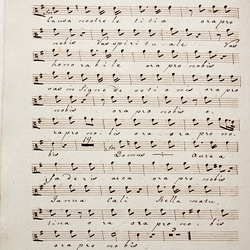 Causa nostre le ti ti e ora pro
nobis Vas spiritu-ale Vas
honorabile ora pro nobis
vas insigne de votio nis ora pro
nobis ora pro nobis o
rapro no-bis ora ora pro no-
bis 19. Domus Aurea
Faderis arca ora pro nobis
Janua Celi Stella matu,
tina ra ora pro no, bis
ora pro nobis 2